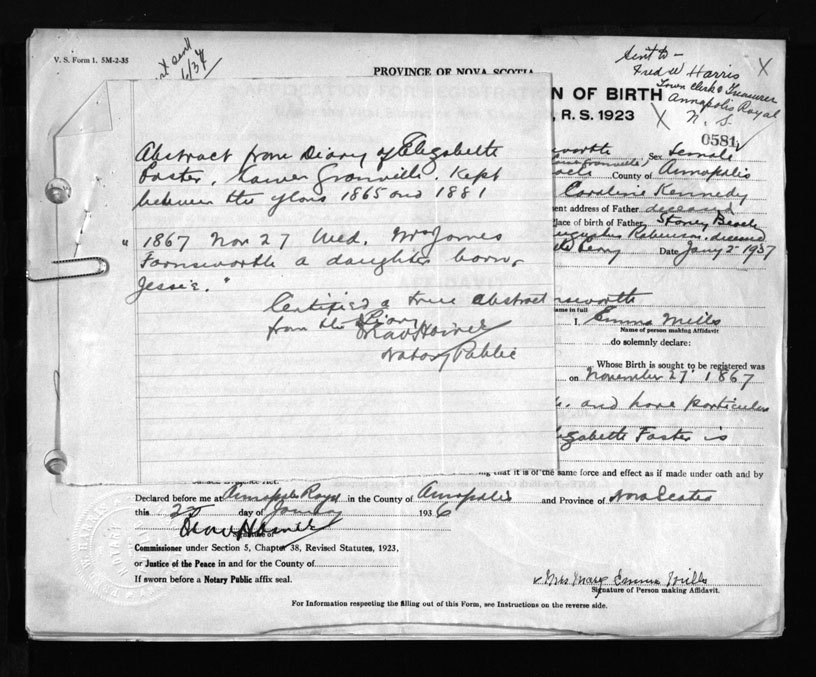 V. S. Form 1. 5M-2-35
sent to -
Fred W Harris
Town Clerk & Treasurer
Annapolis Royal
N. S.
X
X
PROVINCE OF NOVA SCOTIA
N OF BIRTH
, R. S. 1923
0581
Abstract from Diary of Elizabette
Foster, Lower Granville. Kept
between the years 1865 and 1881
"1867 Nov 27 Wed. Mrs James
Farnsworth a daughter born,
Jessie."
Certified a true abstract
from the Diary
Notary Public
worth Sex Female
County of Annapolis
Caroline Kennedy
ent address of Father deceased
lace of birth of Father Stoney Beach
deceased
Date Jany 2 1937
nsworth
ame in full
I, Emma Mills
Name of person making Affidavit
do solemnly declare:
Whose Birth is sought to be registered was
on November 27 1867
and have particulars
lizabette Foster is
ing that it is of the same force and effect as if made under oath and by
Declared before me at Annapolis Royal in the County of Annapolis and Province of Nova Scotia
this 2nd day of January 1936
Signature of
Commissioner under Section 5, Chapter 38, Revised Statutes, 1923,
or Justice of the Peace in and for the County of
If sworn before a Notary Public affix seal.
Mrs Mary Emma Mills
Signature of Person making Affidavit.
For Information respecting the filling out of this Form, see Instructions on the reverse side.